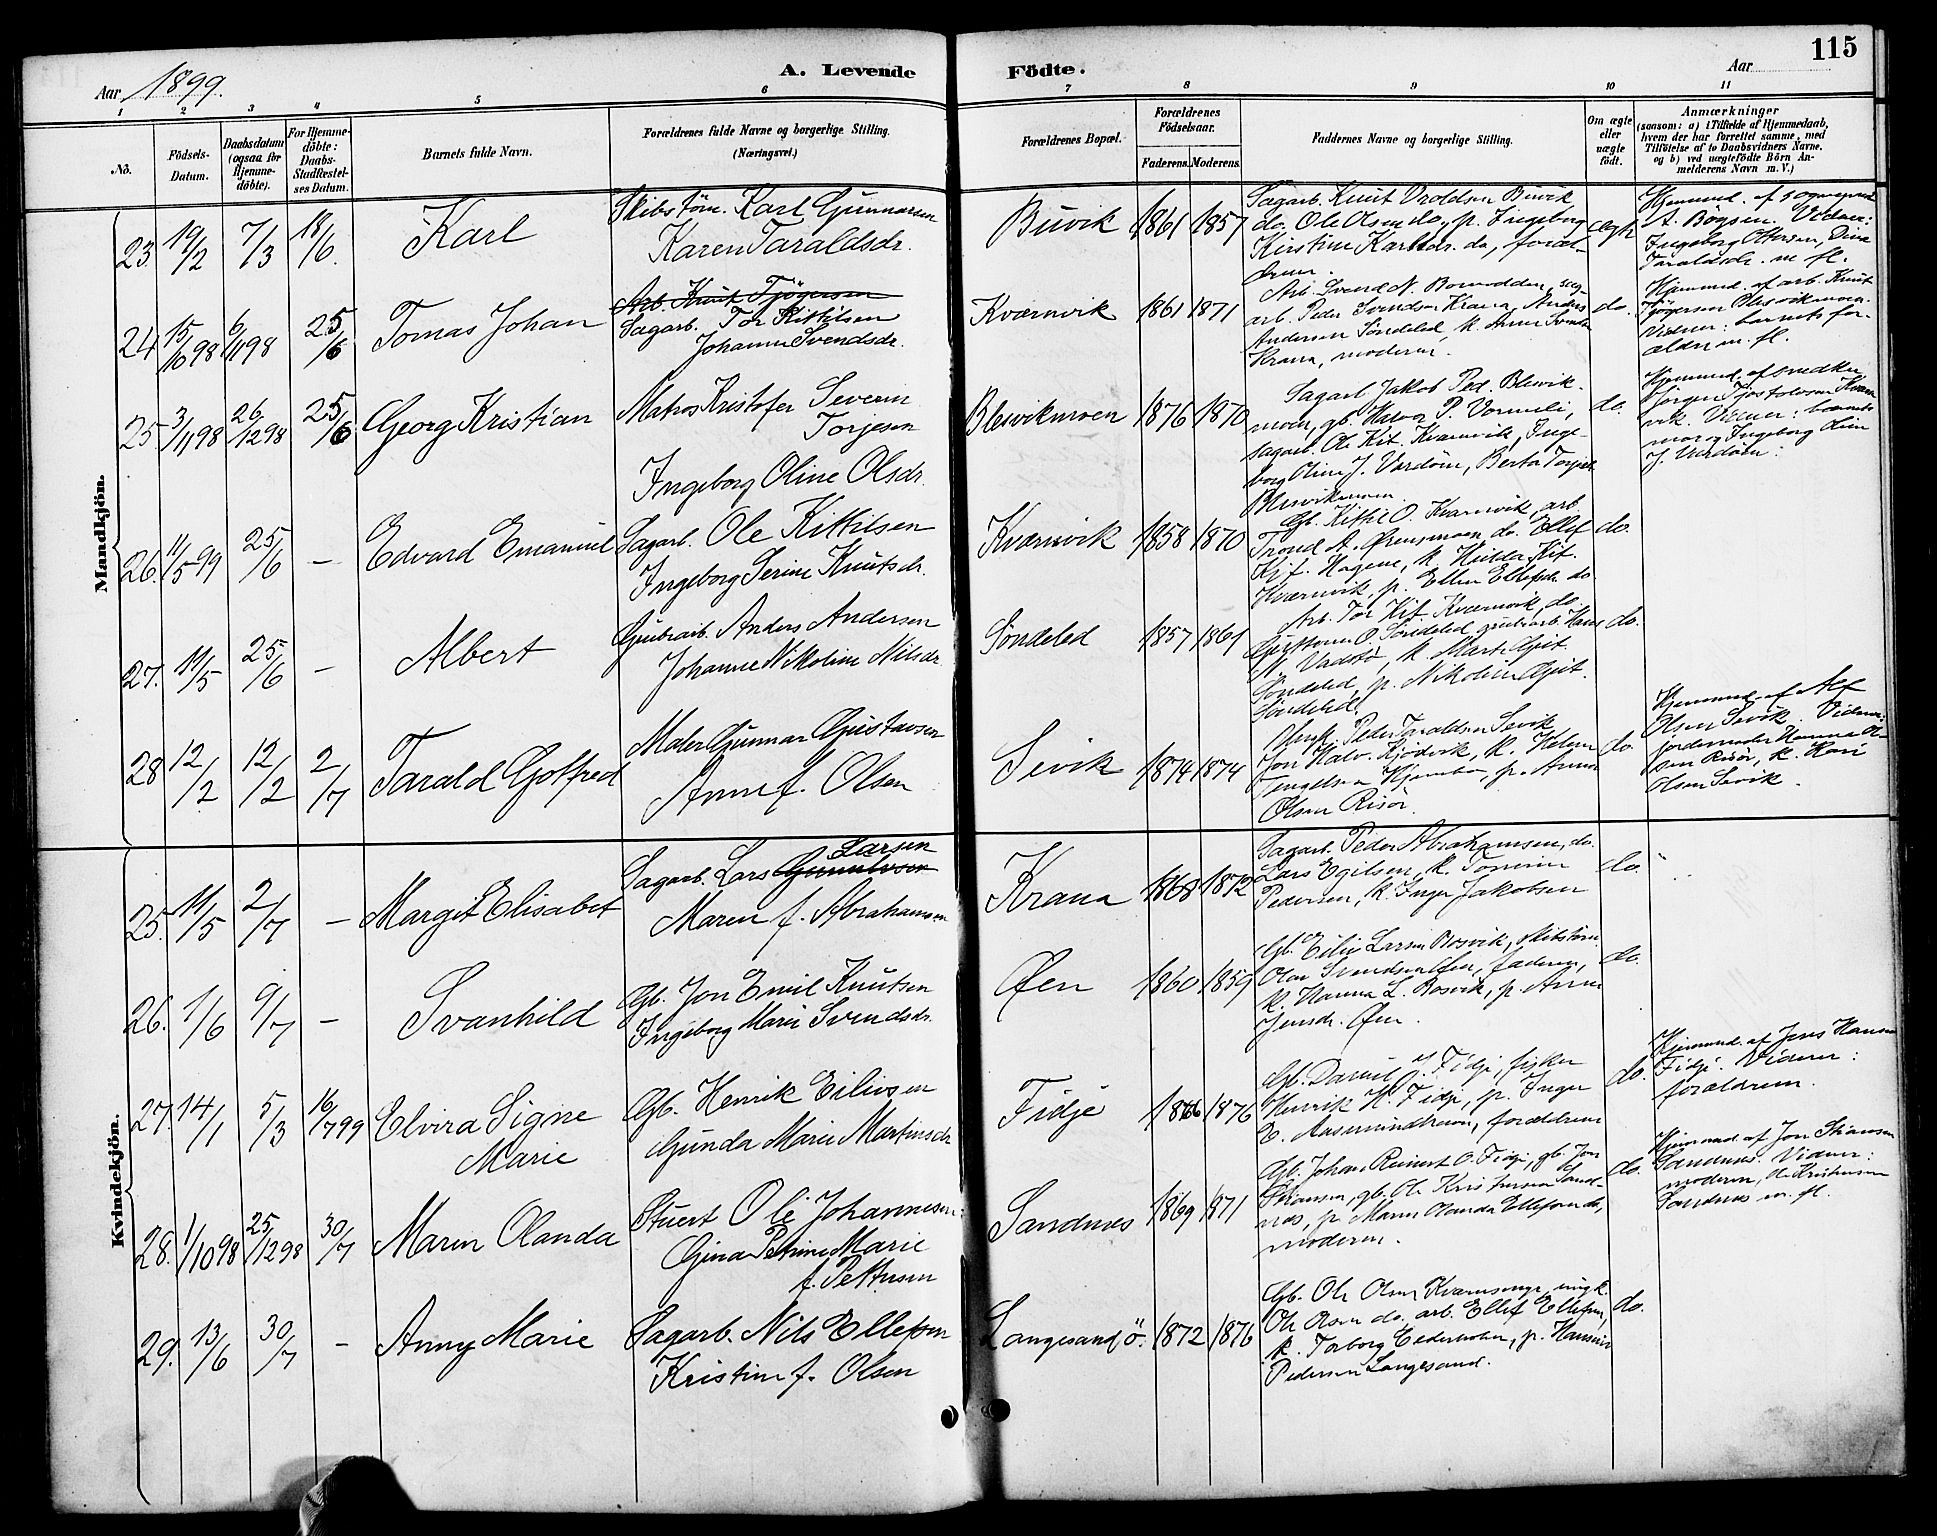 115
Aar 1899.
A. Levende
Födte.
Aar
1 2 3 4 5 6 7 8 9 10 11
No.
Födsels-
Datum.
Daabsdatum
(ogsaa for
Hjemme-
döbte).
For Hjemme-
döbte:
Daabs-
Stadfæstel-
ses Datum.
Barnets fulde Navn.
Forældrenes fulde Navne og borgerlige Stilling.
(Næringsvei.)
Forældrenes Bopæl.
Forældrenes
Födselsaar.
Faderens. Moderens.
Faddernes Navne og borgerlige Stilling.
Om ægte
eller
uægte
födt.
Anmærkninger
(saasom: a) i Tilfælde af Hjemmedaab,
hvem der har forrettet samme, med
Tilföielse af to Daabsvidners Navne.
og b) ved uægtefödte Börn An-
melderens Navn m. V.)
Mandkjön.
23. 19/2 7/3 18/6. Karl
Skibstøm. Karl Gunnarsen
Karen Taraldsdr.
Buvik 1861 1857
Sagarb. Knut Vroldsen Buvik
do. Ole Olsen do, p. Ingeborg
Kirstine Karlsdr. do, foræl-
drene.
ægte
Hjemmed. af sognepræst
A. Böysen. Vidner:
Ingeborg Ottersen, Dina
Taraldsdr. m fl.
24 15/10 98 6/11 98 25/6 Tomas Johan
Arb. Knut Tjögersen
Sagarb. Tor Kittilsen
Johanne Svendsdr.
Kværnvik 1861 1871
Arb. Svend N. Bomodden, sag-
arb. Peder Svendsen Krana, Anders
Andersen Söndeled, k. Anne Svends.
Krana, moderen.
do.
Hjemmed. af arb. Knut
Tjögersen Blesvikmoen.
Vidner: barnets for-
ældre m. fl.
25 3/11 98 26/12 98 25/6 Georg Kristian
Matros Kristofer Severin
Torjesen
Ingeborg Oline Olsdr.
Blesvikmoen 1876 1870
Sagarb Jakob Ped. Blesvik-
moen, gb. Halvor P. Vormeli,
sagarb. Ole Kit. Kværnvik, Inge-
borg Oline J. Vardöen, Berta Torjes.
Blesvikmoen.
do.
Hjemmed. af snedker
Jörgen Tjostolvsen Kværn
vik. Vidner: barnets
mor og Ingeborg Oline
J. Vardöen.
26. 11/5 99 25/6 – Edvard Emanuel
Sagarb. Ole Kittilsen
Ingeborg Serine Knutsdr.
Kværnvik 1858 1870
Gb. Kittil O. Kværnvik, arb.
Trond A. Ørensmoen, do. Ellef
Kjf. Hagene, k. Hulda Kit.
Kværnvik, p. Ellen Ellefsdr. do
do.
27. 11/5 25/6 – Albert
Grubearb. Anders Andersen
Johanne Nikoline Nilsdr.
Söndeled 1857 1861
Arb. Tor Kit. Kværnvik, do.
O. Söndeled, grubearb. Hans
N. Vadstö, k. Marte
Söndeled, p. Nikoline
Söndeled
do.
28 12/2 12/2 2/7 Tarald Gotfred
Maler Gunnar Gustavsen
Anne f. Olsen
Sivik 1874 1874
Peder Taraldsen Sevik
Jon Halv. Kjödvik, k. Helene
Tengelsen, p. Anna
Olsen Risör
do.
Hjemmed. af Alf
Olsen Sevik. Vidner:
jordemoder Hanna Ol-
sen Risör, k. Kari
Olsen Sevik.
Kvindekjön.
25. 11/5 2/7 – Margit Elisabet
Larsen
Sagarb. Lars Gunnulvsen
Maren f. Abrahamsen
Krana 1868 1872
Sagarb. Peder Abrahamsen, do.
Lars Egilsen, k. Tomine
Pedersen, k. Inger Jakobsen
do.
26. 1/6 9/7 – Svanhild
Gb. Jon Emil Knutsen
Ingeborg Marie Svendsdr.
Øen 1860 1859
Gb. Eilev Larsen Bosvik, skibstöm.
Olav Svendsen Øen, faderen,
k. Hanna L. Bosvik, p. Anne
Jensdr. Øen.
do.
27. 14/1 5/3 16/7 99 Elvira Signe
Marie
Gb. Henrik Eilivsen
Gunda Marie Martinsdr
Fidje 1866 1876
Gb. Daniel J. Fidje, fisker
Henrik H. Fidje, p. Inger
E. Aasmundhavn, forældrene
do.
Hjemmed. af Jens Hansen
Fidje. Vidner:
forældrene.
28. 1/10 98 25/12 98 30/7 Maren Olanda
Stuert Ole Johannesen
Gina Petrine Marie
f. Pettersen
Sandnes 1869 1871
Gb. Johan Reinert O. Fidje, gb. Jon
Stiansen, gb. Ole Kristensen Sand-
nes, p. Maren Olanda Ellefsen do,
moderen.
do.
Hjemmed af Jon Stiansen
Sandnes. Vidner:
moderen, Ole Kristensen
Sandnes m. fl.
29. 13/6 30/7 – Anny Marie
Sagarb. Nils Ellefsen
Kristine f. Olsen
Langesand ö. 1872 1876
Gb. Ole Olsen Kvarmsnge, ungk.
Ole Olsen do, arb. Ellef Ellefsen,
k. Torborg Cederholm, p. Hansine
Pedersen Langesand.
do.